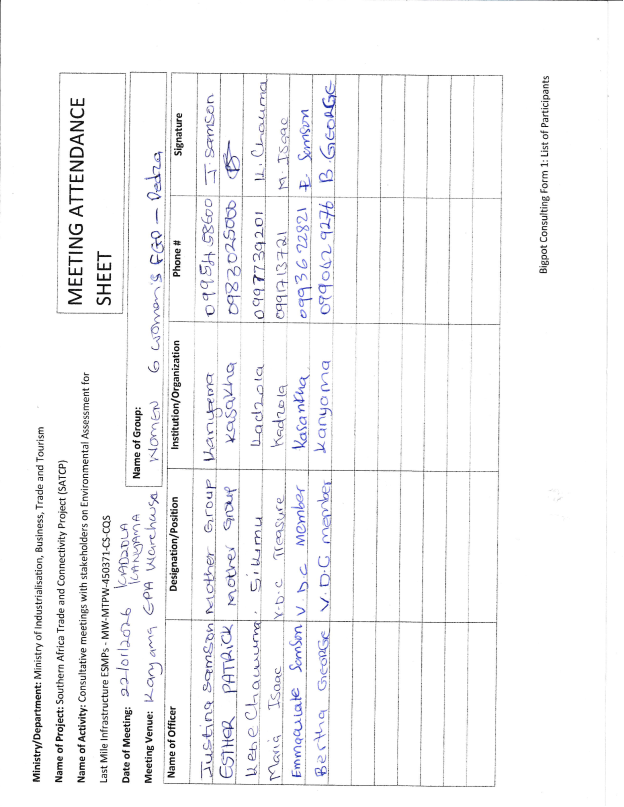 Ministry/Department: Ministry of Industrialisation, Business, Trade and Tourism
Name of Project: Southern Africa Trade and Connectivity Project (SATCP)
Name of Activity: Consultative meetings with stakeholders on Environmental Assessment for
Last Mile Infrastructure ESMPs - MW-MTPW-450371-CS-CQS
MEETING ATTENDANCE
SHEET
Date of Meeting: 22/01/2026 KADZOLA
KANYAMA
Meeting Venue: Kanyama EPA Warehouse
Name of Group: WOMEN 6 women's FGD - Dedza
Name of Officer Designation/Position Institution/Organization Phone # Signature
Justina Samson Mother Group Kanyama 0995458600 J. Samson
ESTHER PATRICK Mother Group Kasakha 0983025000
Chauluma K. Chauma 0997739201 Kadzola
Maria Isaac V.D.C Treasure Kadzola 0991713721 M. Isaac
Emmaculate Samson V D C Member Kasankha 0993622821 E. Samson
Bertha GEORGE V.D.C member Kanyoma 0990429276 B. GEORGE
Bigpot Consulting Form 1: List of Participants